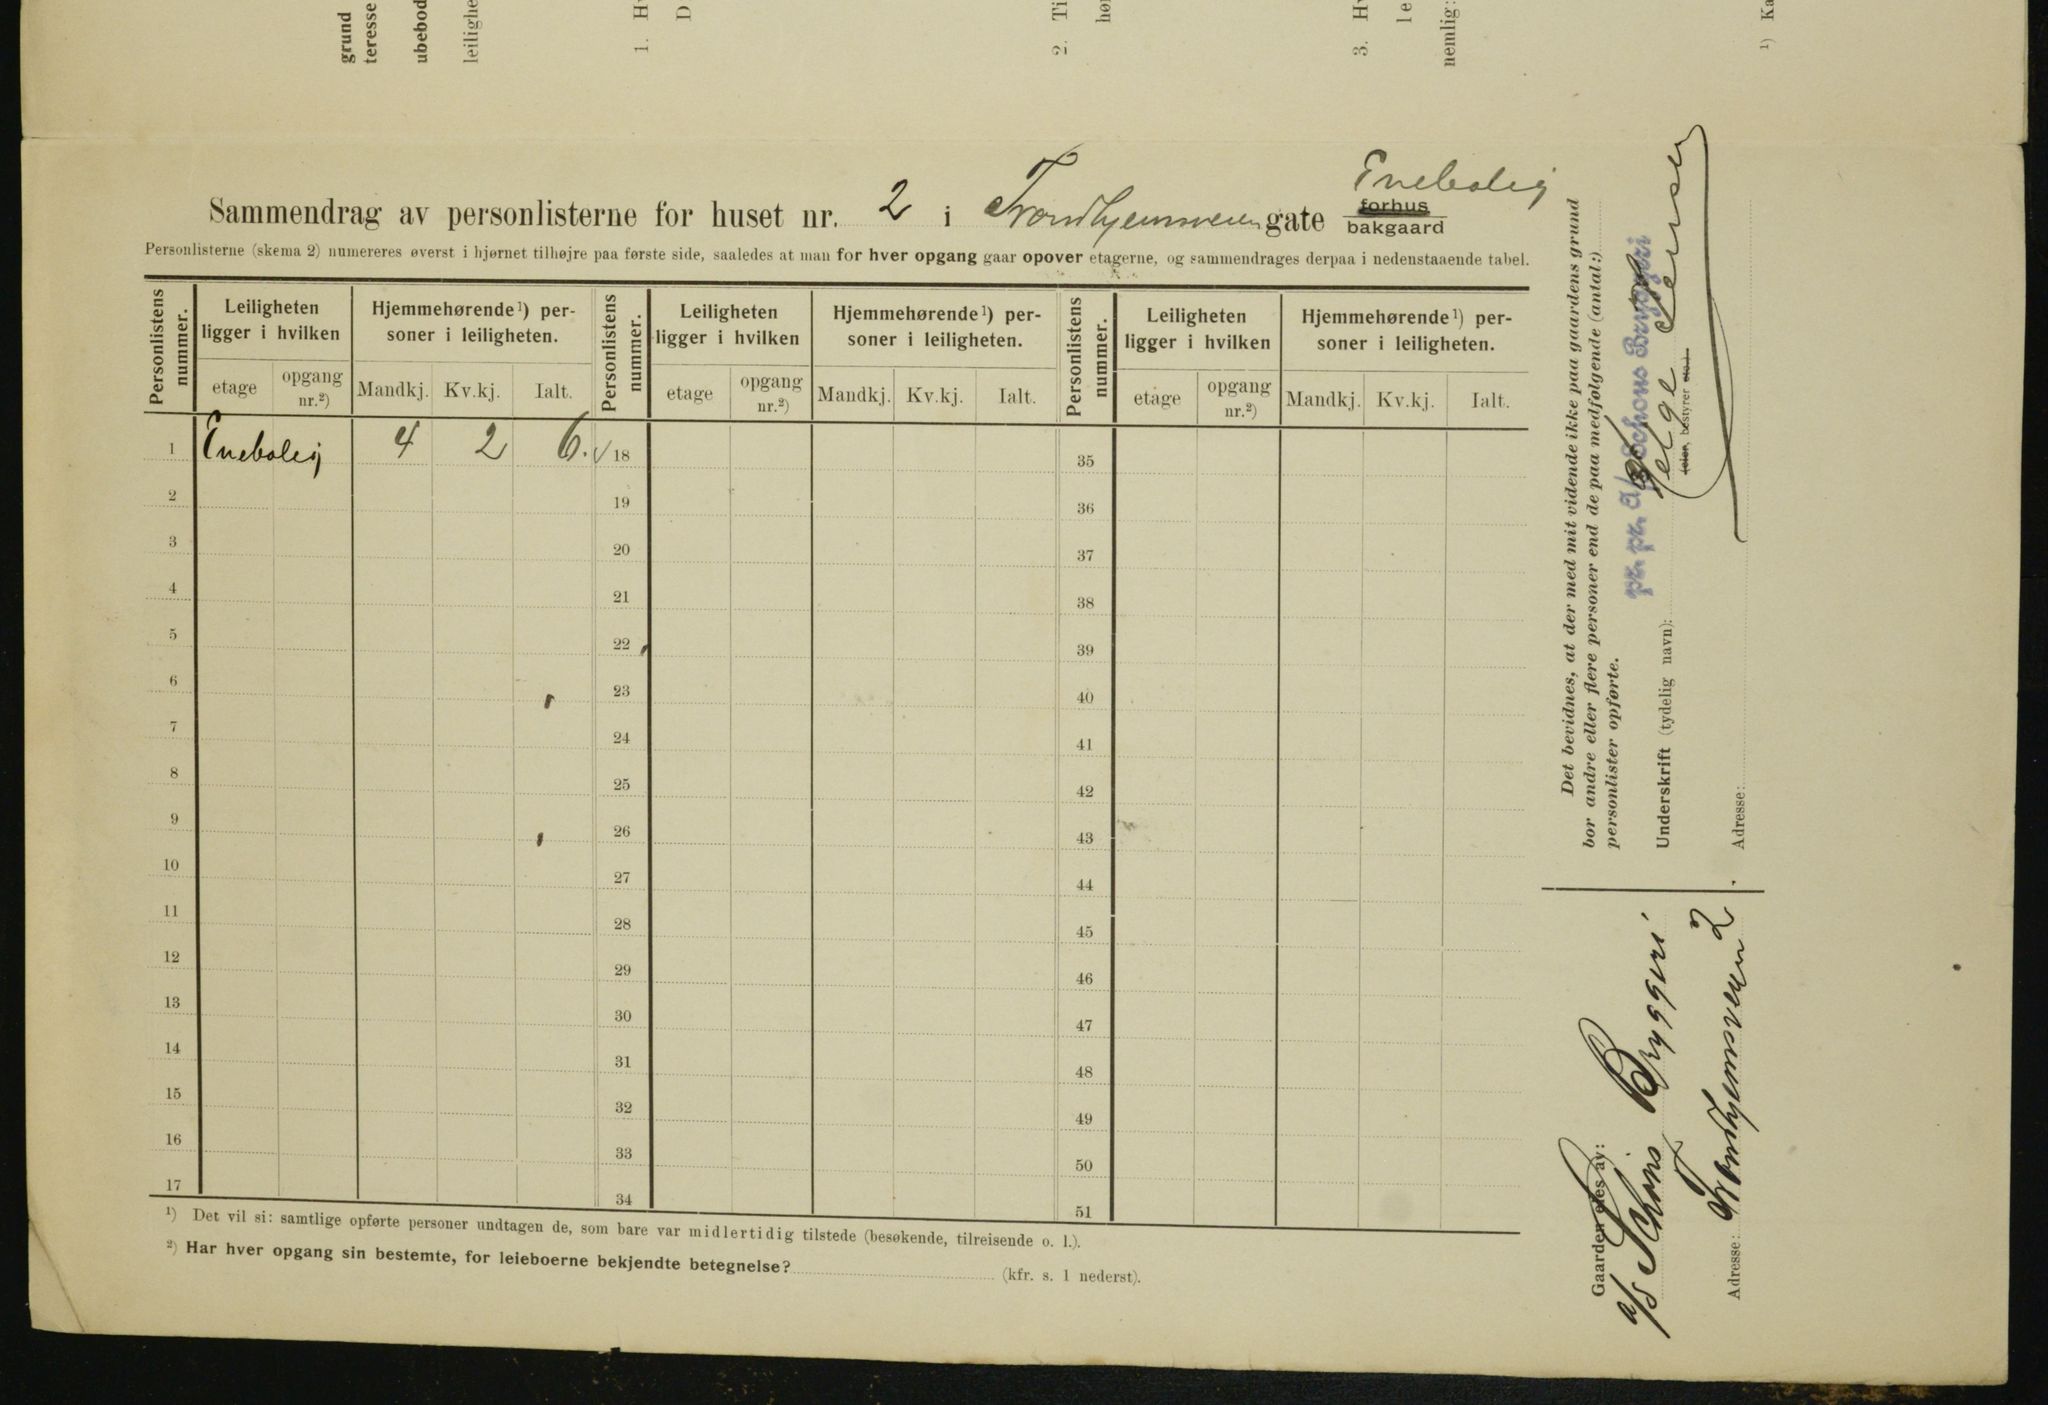 grund
teresse
ubebod
leilighe
1. Hv
D
2. Ti
hør
3. Hv
le
nemlig:
¹) Ka
Enebolig
Sammendrag av personlisterne for huset nr. 2 i Trondhjemsveien gate forhus
bakgaard
Personlisterne (skema 2) numereres øverst i hjørnet tilhøjre paa første side, saaledes at man for hver opgang gaar opover etagerne, og sammendrages derpaa i nedenstaaende tabel.
Personlistens nummer. Leiligheten ligger i hvilken Hjemmehørende¹) personer i leiligheten. Personlistens nummer. Leiligheten ligger i hvilken Hjemmehørende¹) personer i leiligheten. Personlistens nummer. Leiligheten ligger i hvilken Hjemmehørende¹) personer i leiligheten.
etage opgang nr.²) Mandkj. Kv.kj. Ialt. etage opgang nr.²) Mandkj. Kv.kj. Ialt. etage opgang nr.²) Mandkj. Kv.kj. Ialt.
1 Enebolig 4 2 6. √ 18 35
2 19 36
3 20 37
4 21 38
5 22 39
6 23 40
7 24 41
8 25 42
9 26 43
10 27 44
11 28 45
12 29 46
13 30 47
14 31 48
15 32 49
16 33 50
17 34 51
¹) Det vil si: samtlige opførte personer undtagen de, som bare var midlertidig tilstede (besøkende, tilreisende o. l.).
²) Har hver opgang sin bestemte, for leieboerne bekjendte betegnelse? (kfr. s. 1 nederst).
Det bevidnes, at der med mit vidende ikke paa gaardens grund
bor andre eller flere personer end de paa medfølgende (antal:)
personlister opførte.
pr. pr. A/S Schous Bryggeri
Underskrift (tydelig navn): Helge
(eier, bestyrer etc.).
Adresse:
Gaarden eies av:
A/S Schous Bryggeri
Adresse: Trondhjemsveien 2